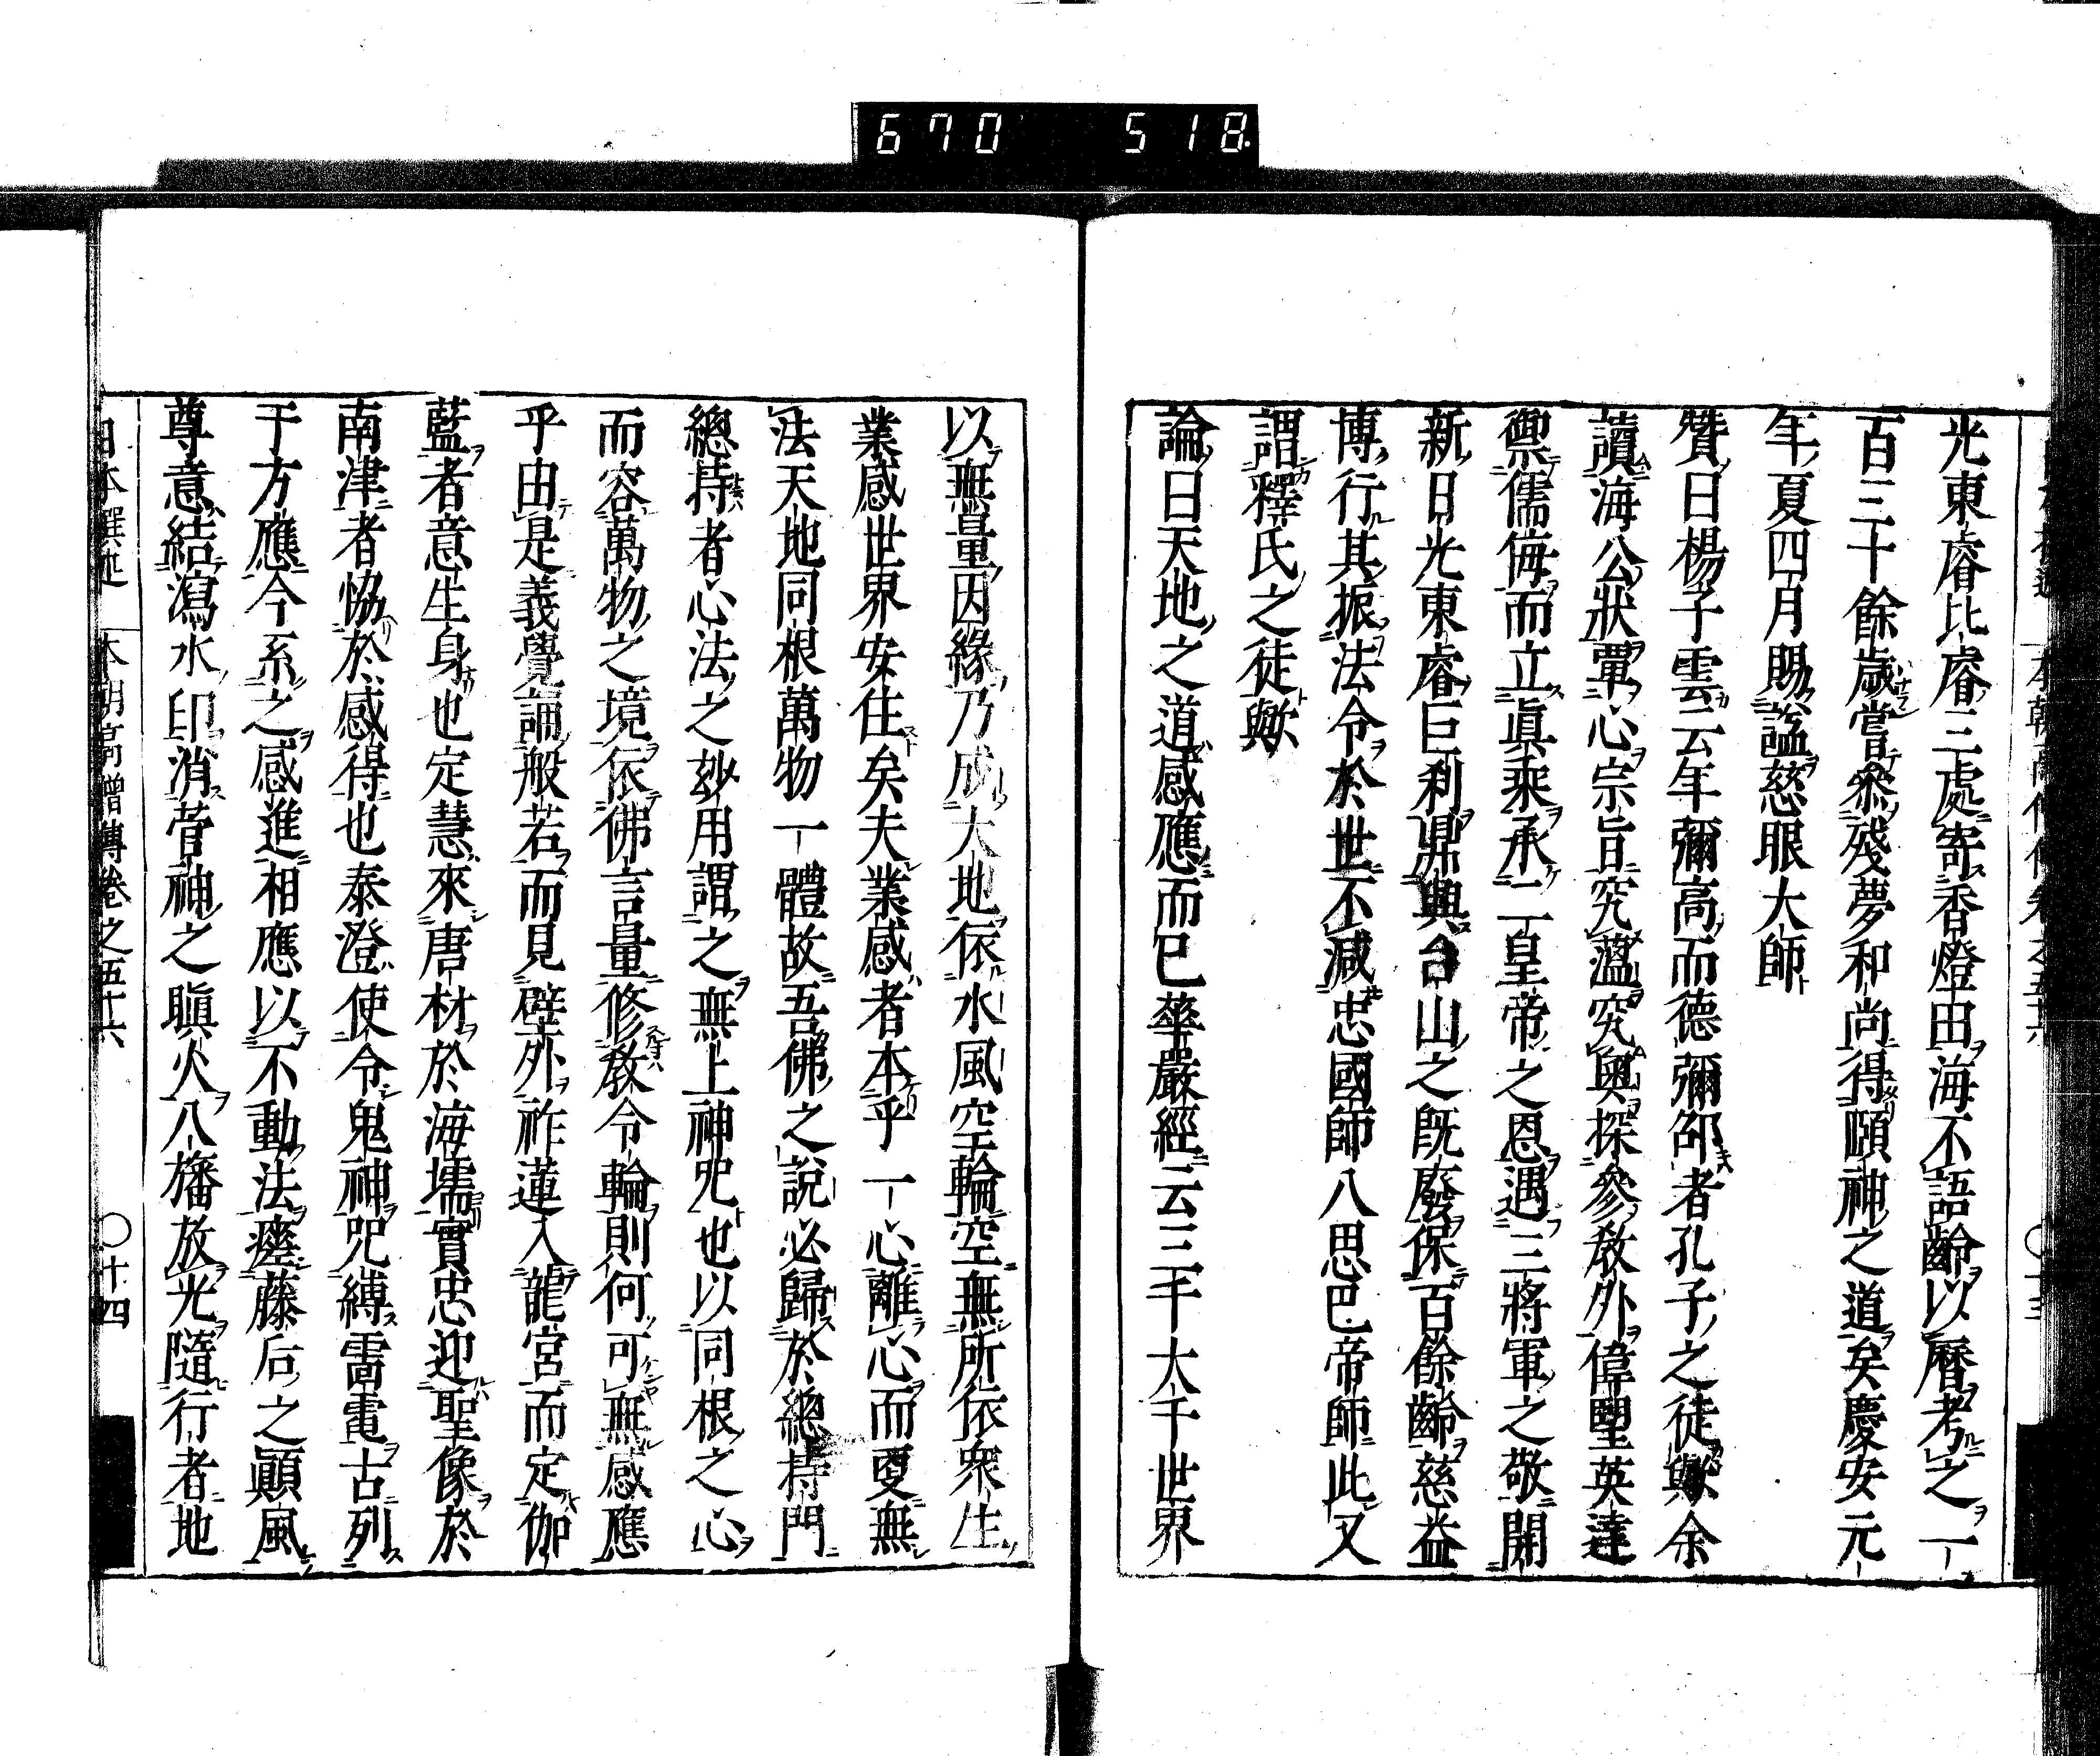 670 518
光東睿比睿三處寄香燈田海不語齡以曆考之一
百三十餘歲嘗參殘夢和尚得頤神之道矣慶安元
年夏四月賜謚慈眼大師
贊曰楊子雲云年彌高而德彌邵者孔子之徒歟余
讀海公狀覃心宗旨究薀究奧探參教外偉塱英達
禦儒侮而立眞乘承二皇帝之恩遇三將軍之敬開
新日光東睿巨利鼎興台山之旣廢保百餘齡慈益
博行其振法令於世不減忠國師八思巴帝師此又
謂釋氏之徒歟
論曰天地之道感應而已華嚴經云三千大千世界
以無量因緣乃成大地依水風空輪空無所依衆生
業感世界安住矣夫業感者本乎一心離心而更無
法天地同根萬物一體故吾佛之說必歸於總持門
總持者心法之玅用謂之無上神咒也以同根之心
而容萬物之境依佛言量修敎令輪則何可無感應
乎由是義覺誦般若而見壁外祚蓮入龍宮而定伽
藍者意生身也定慧來唐材於海壖實忠迎聖像於
南津者恊於感得也泰澄使令鬼神咒縛雷電古列
于方應今系之感進相應以不動法瘞藤后之顚風
尊意結瀉水印消菅神之瞋火八旛放光隨行者地
日本撰述 本朝高僧傳卷之五十六 〇十四